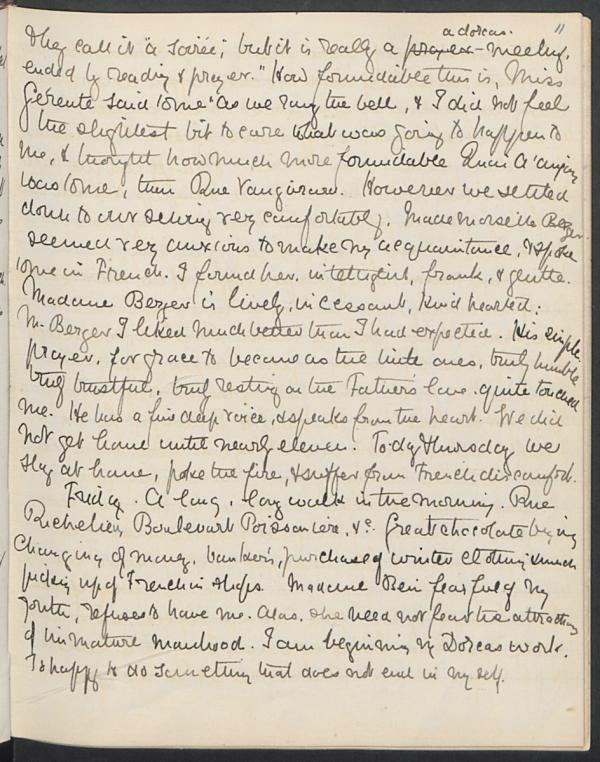 11
a dorcas.
They call it "a soirée", but it is really a prayer-meeting,
ended by reading & prayer." How formidable this is, Miss
Gérente said to me "as we rang the bell, & I did not feel
the slightest bit to care what was going to happen to
me, & thought how much more formidable Quai d'
was to me, than Rue Vaugirard. However we settled
down to our sewing very comfortably. Mademoiselle Berger
seemed very anxious to make my acquaintance, & spoke
to me in French. I found her intelligent, frank, & gentle.
Madame Berger is lively, incessant, kind hearted;
M. Berger I liked much better than I had expected. His simple
prayer, for grace to become as the little ones, truly humble
truly trustful, truly resting on the Father's love quite touched
me. He has a fine deep voice, & speaks from the heart. We did
not get home until nearly eleven. Today Thursday we
stay at home, poke the fire, & suffer from French discomfort.
Friday. A long, long walk in the morning. Rue
Richelieu, Boulevart Poissonière, &c. Great chocolate buying
changing of money, bankers, purchase of winter clothing & much
picking up of French in shops. Madame fearful of my
youth, refuses to have me. Alas. she need not fear the attractions
of immature manhood. I am beginning my Dorcas work.
Is happy to do something that does not end in myself.